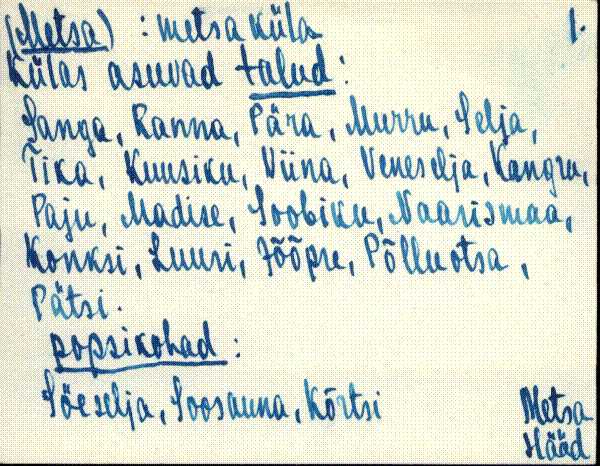 (Metsa) : metsaküla 1.
Külas asuvad talud:
Sanga, Ranna, Pära, Murru, Selja,
Tika, Kuusiku, Niina, Veneselja, Kangru,
Paju, Madise, Soobiku, Naarismaa,
Konksi, Luuri, Jõõpre, Põlluotsa,
Pätsi.
popsikohad:
Sõeselja, Soosauna, Kõrtsi
Metsa
Hääd